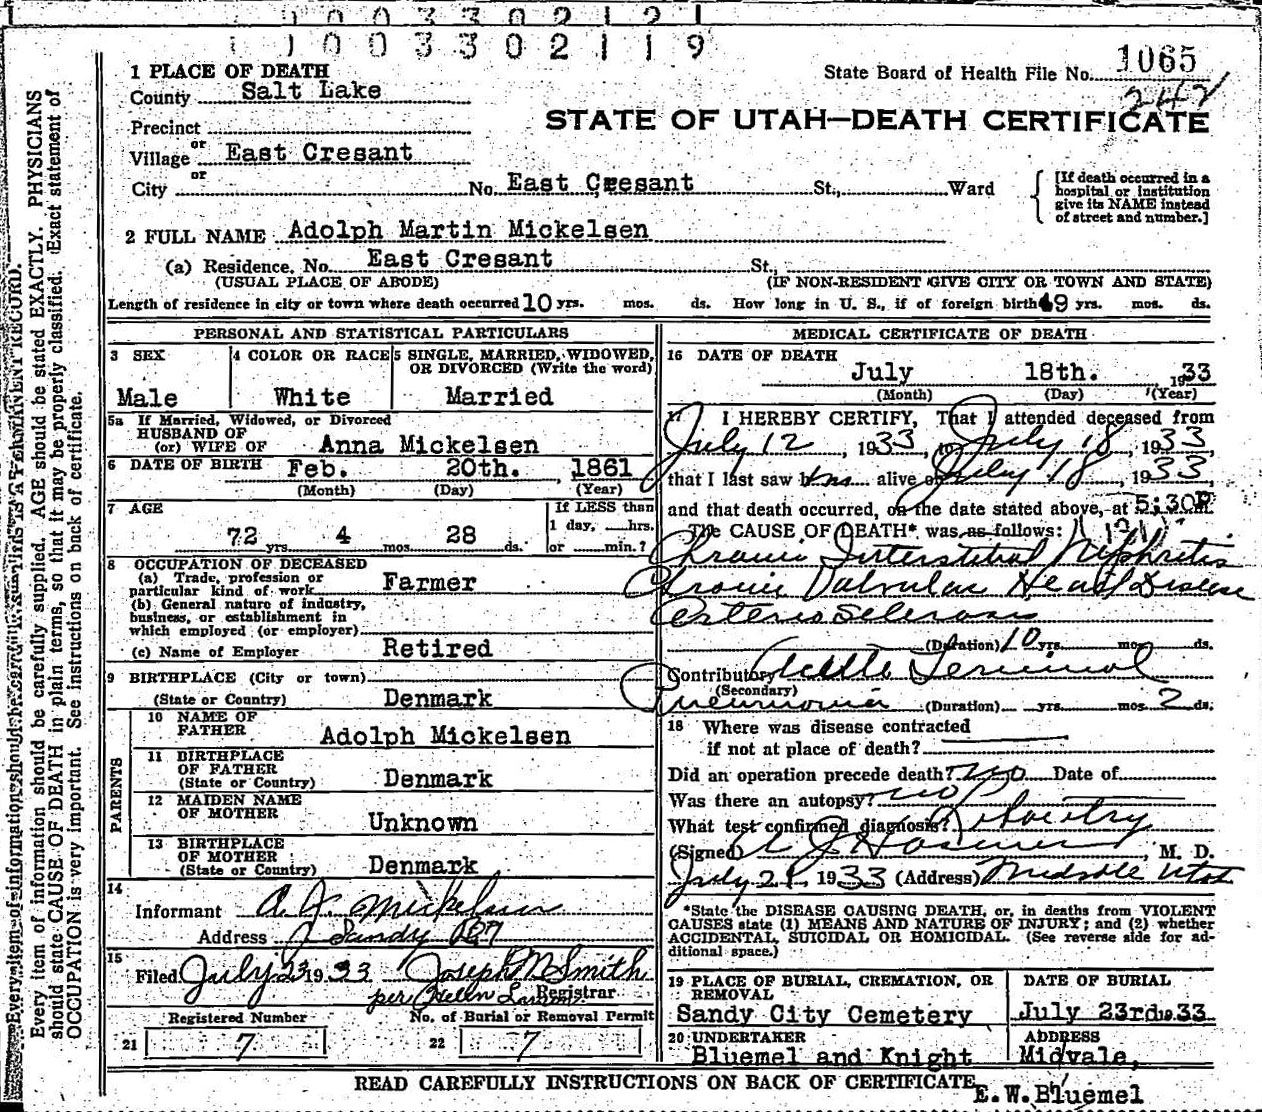 1003302121
1003302119
1 PLACE OF DEATH
State Board of Health File No. 1065
242
County Salt Lake
STATE OF UTAH—DEATH CERTIFICATE
Precinct
or
Village East Cresant
or
City No. East Cresant St., Ward
[If death occurred in a
hospital or institution
give its NAME instead
of street and number.]
2 FULL NAME Adolph Martin Mickelsen
(a) Residence. No. East Cresant St.,
(USUAL PLACE OF ABODE) (IF NON-RESIDENT GIVE CITY OR TOWN AND STATE)
Length of residence in city or town where death occurred 10 yrs. mos. ds. How long in U. S., if of foreign birth 49 yrs. mos. ds.
PERSONAL AND STATISTICAL PARTICULARS
3 SEX
Male
4 COLOR OR RACE
White
5 SINGLE, MARRIED, WIDOWED,
OR DIVORCED (Write the word)
Married
5a If Married, Widowed, or Divorced
HUSBAND OF
(or) WIFE OF Anna Mickelsen
6 DATE OF BIRTH Feb. 20th. , 1861
(Month) (Day) (Year)
7 AGE
72 yrs. 4 mos. 28 ds.
If LESS than
1 day, hrs.
or min.?
8 OCCUPATION OF DECEASED
(a) Trade, profession or
particular kind of work Farmer
(b) General nature of industry,
business, or establishment in
which employed (or employer)
(c) Name of Employer Retired
9 BIRTHPLACE (City or town)
(State or Country) Denmark
PARENTS
10 NAME OF
FATHER Adolph Mickelsen
11 BIRTHPLACE
OF FATHER
(State or Country) Denmark
12 MAIDEN NAME
OF MOTHER Unknown
13 BIRTHPLACE
OF MOTHER
(State or Country) Denmark
14
Informant A. J. Mickelsen
Address Sandy
15
Filed July 23 1933 Joseph M Smith
per Helen Larson Registrar
Registered Number
No. of Burial or Removal Permit
21 7
22 7
MEDICAL CERTIFICATE OF DEATH
16 DATE OF DEATH
July 18th. 1933
(Month) (Day) (Year)
17 I HEREBY CERTIFY, That I attended deceased from
July 12, 1933, to July 18, 1933
that I last saw him alive on July 18, 1933
and that death occurred, on the date stated above, at 5:30P m.
The CAUSE OF DEATH* was as follows: (131)
Chronic Interstitial Nephritis
Chronic Valvular Heart Disease
Arterio Sclerosis
(Duration) 10 yrs. mos. ds.
Contributory Acute Terminal
(Secondary)
Pneumonia (Duration) yrs. mos. 2 ds.
18 Where was disease contracted
if not at place of death?
Did an operation precede death? No Date of
Was there an autopsy? no
What test confirmed diagnosis?
(Signed) , M. D.
July 21 1933 (Address) Midvale Utah
*State the DISEASE CAUSING DEATH, or, in deaths from VIOLENT
CAUSES state (1) MEANS AND NATURE OF INJURY; and (2) whether
ACCIDENTAL, SUICIDAL OR HOMICIDAL. (See reverse side for ad-
ditional space.)
19 PLACE OF BURIAL, CREMATION, OR
REMOVAL
Sandy City Cemetery
DATE OF BURIAL
July 23rd 1933
20 UNDERTAKER
Bluemel and Knight
ADDRESS
Midvale,
READ CAREFULLY INSTRUCTIONS ON BACK OF CERTIFICATE
E.W.Bluemel
Every item of information should be carefully supplied. AGE should be stated EXACTLY. PHYSICIANS
should state CAUSE OF DEATH in plain terms, so that it may be properly classified. Exact statement of
OCCUPATION is very important. See instructions on back of certificate.